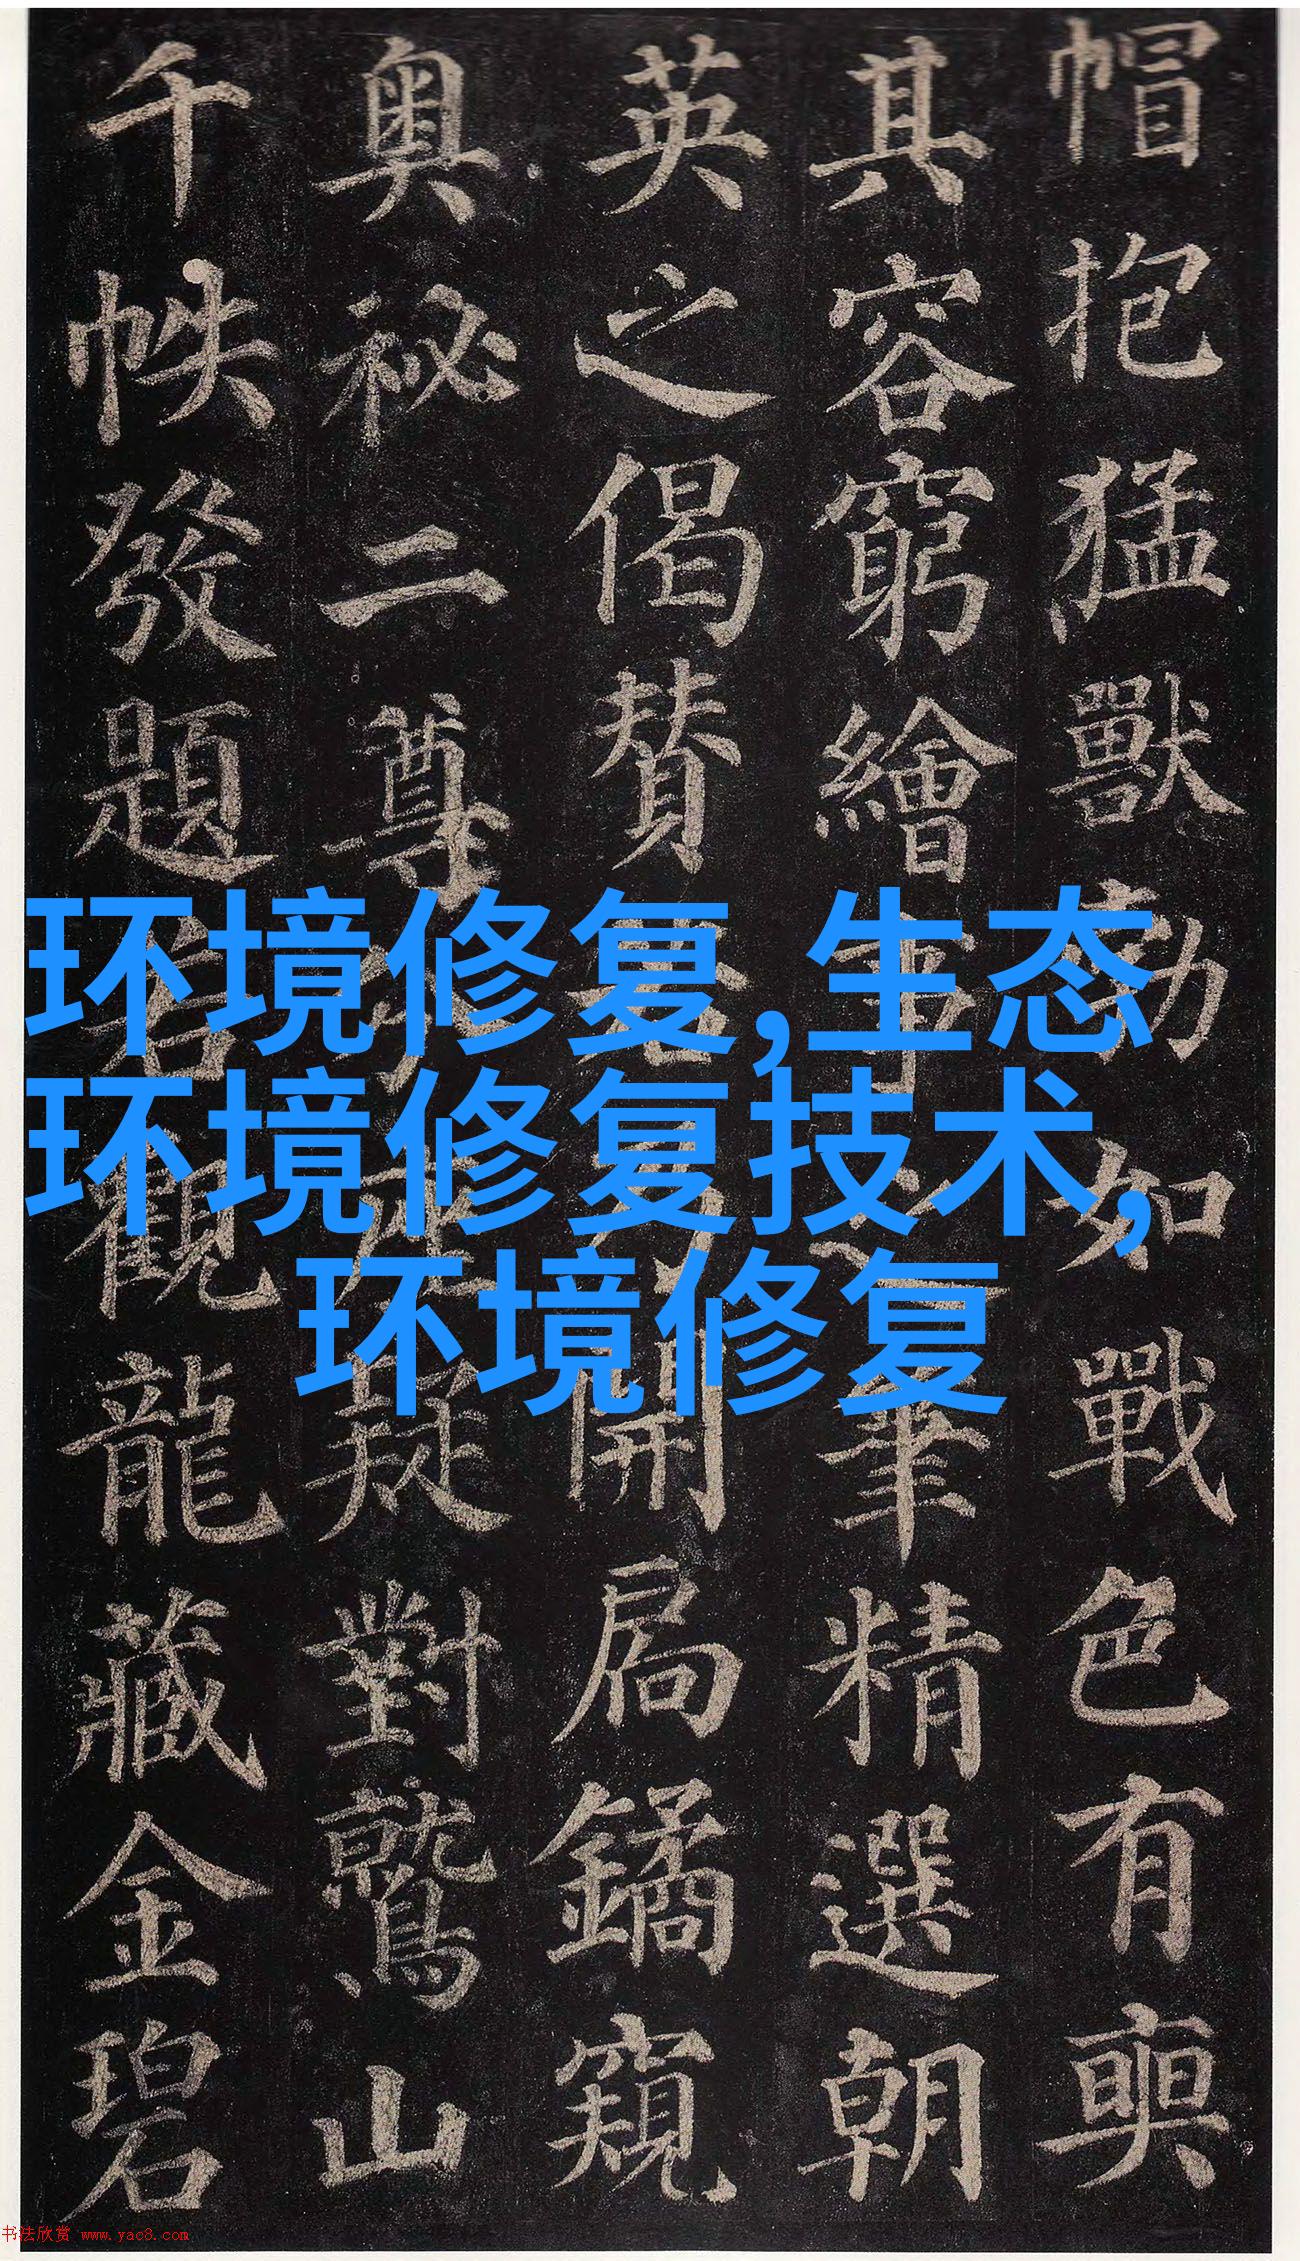 帽抱猛獸勃如戰色有奭
其容窮繪事之筆精選朝
英之偈賛若開扃鐍窺
奥祕二尊分座疑對鷲山
千帙發題若觀龍藏金碧
环境修复,生态
环境修复技术,
环境修复
书法欣赏 www.yac8.com